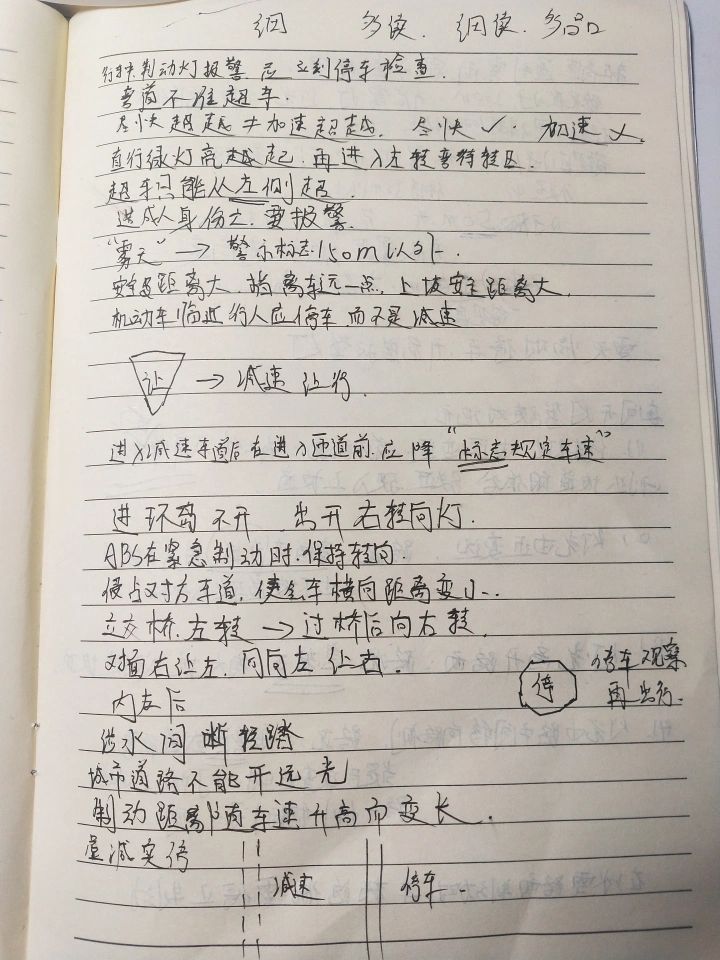 细 多读. 细读. 多品
行车制动灯报警 应立刻停车检查.
弯道不准超车.
尽快超越≠加速超越. 尽快✓. 加速✗
直行绿灯亮越起.再进入左转弯待转区.
超车只能从左侧超.
造成人身伤亡.要报警.
"雾天"→警示标志150m以外.
安全距离大.指离车远一点.上坡安全距离大.
机动车临近行人应停车而不是减速
让 → 减速让行.
进入减速车道后在进入匝道前.应降"标志规定车速"
进环岛不开 出开右转向灯.
ABS在紧急制动时.保持转向.
侵占对方车道,使会车横向距离变小.
立交桥.左转→过桥后向右转.
对面右让左.同向左让右.
停 停车观察
再出行.
内左后
涉水间断轻踏
城市道路不能开远光
制动距离随车速升高而变长.
虚减实停
减速 停车.